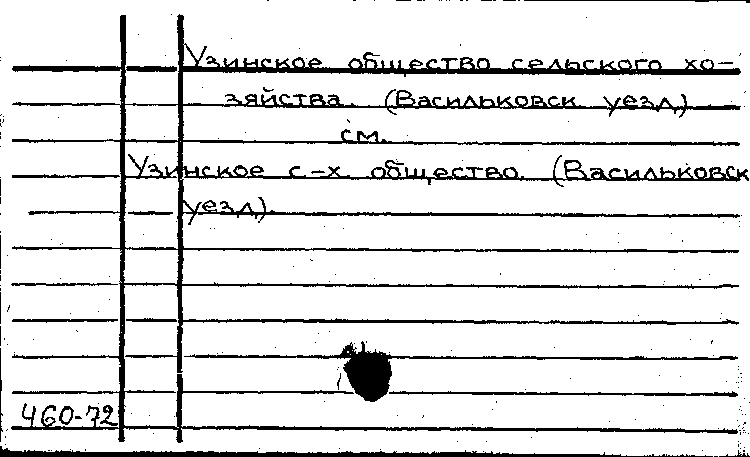 Узинское общество сельского хо-
зяйства. (Васильковск уезд)
см.
Узинское с-х. общество. (Васильковск
уезд).
460-72